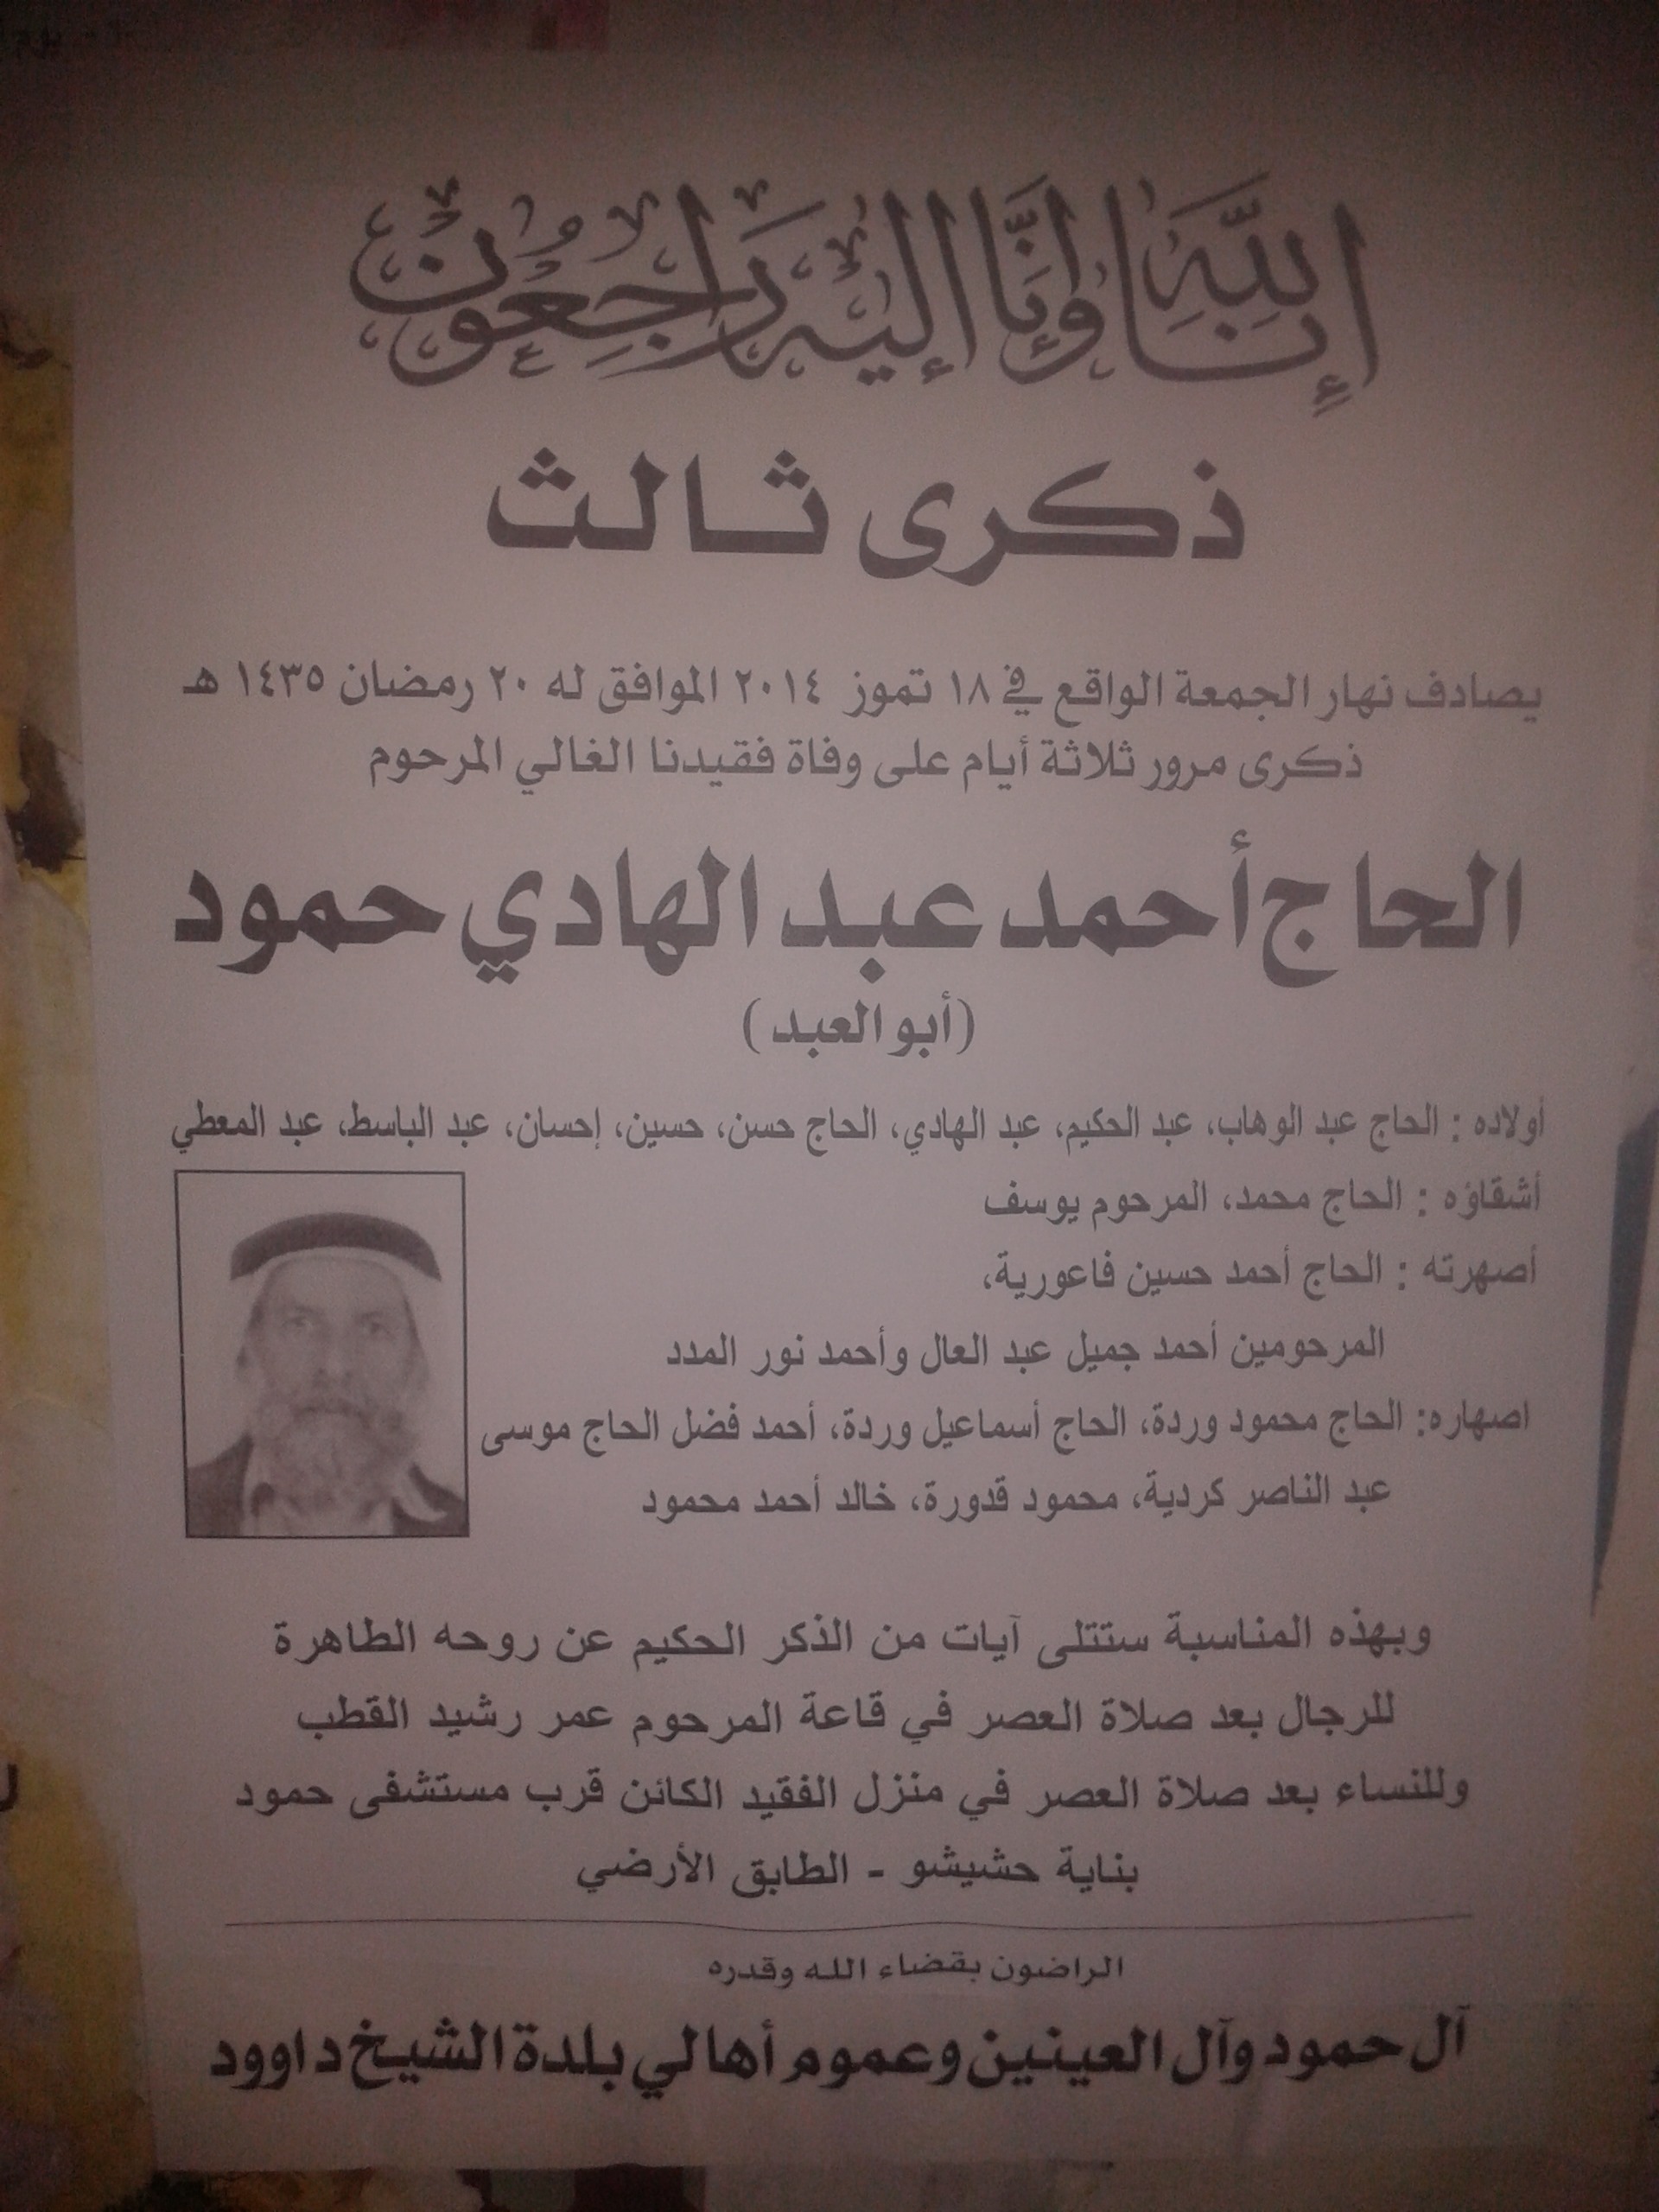 إنا لله وإنا إليه راجعون
ذكرى ثالث
يصادف نهار الجمعة الواقع في ١٨ تموز ٢٠١٤ الموافق له ٢٠ رمضان ١٤٣٥ هـ
ذكرى مرور ثلاثة أيام على وفاة فقيدنا الغالي المرحوم
الحاج أحمد عبد الهادي حمود
(أبو العبد)
أولاده : الحاج عبد الوهاب، عبد الحكيم، عبد الهادي، الحاج حسن، حسين، إحسان، عبد الباسط، عبد المعطي
أشقاؤه : الحاج محمد، المرحوم يوسف
أصهرته : الحاج أحمد حسين فاعورية،
المرحومين أحمد جميل عبد العال وأحمد نور المدد
اصهاره: الحاج محمود وردة، الحاج أسماعيل وردة، أحمد فضل الحاج موسى
عبد الناصر كردية، محمود قدورة، خالد أحمد محمود
وبهذه المناسبة ستتلى آيات من الذكر الحكيم عن روحه الطاهرة
للرجال بعد صلاة العصر في قاعة المرحوم عمر رشيد القطب
وللنساء بعد صلاة العصر في منزل الفقيد الكائن قرب مستشفى حمود
بناية حشيشو - الطابق الأرضي
الراضون بقضاء الله وقدره
آل حمود وآل العينين وعموم أهالي بلدة الشيخ داوود